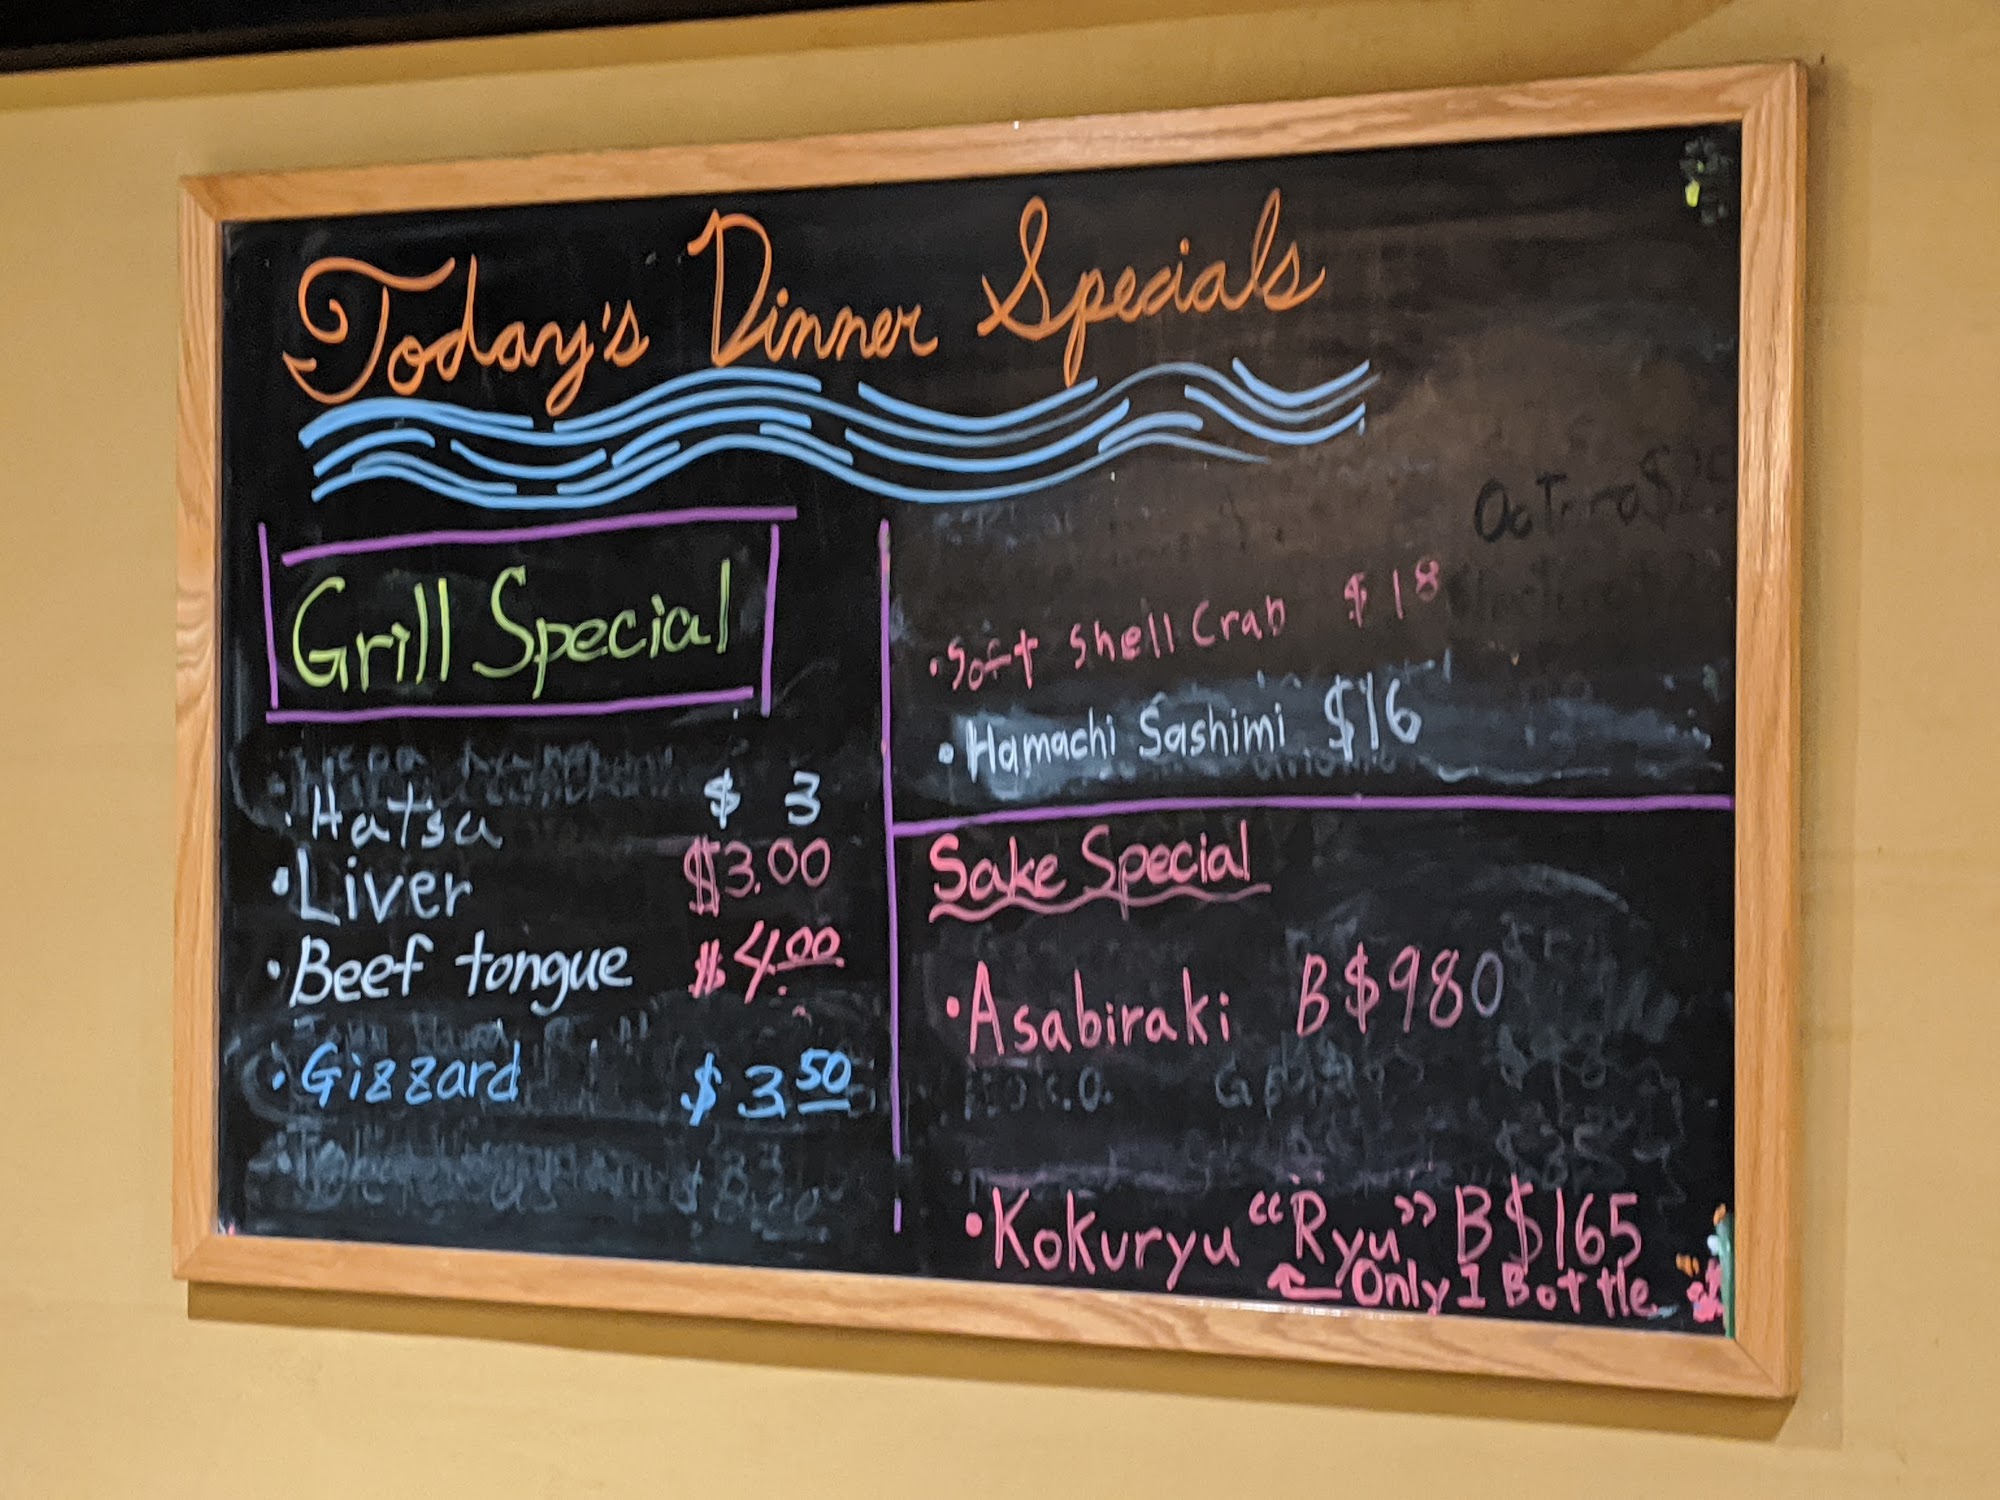 Today's Dinner Specials
Grill Special
· Hatsu $ 3
· Liver $3.00
· Beef tongue $4.00
· Gizzard $3.50
· Soft Shell Crab $18
· Hamachi Sashimi $16
Sake Special
· Asabiraki B$980
· Kokuryu “Ryu” B$165
Only 1 Bottle